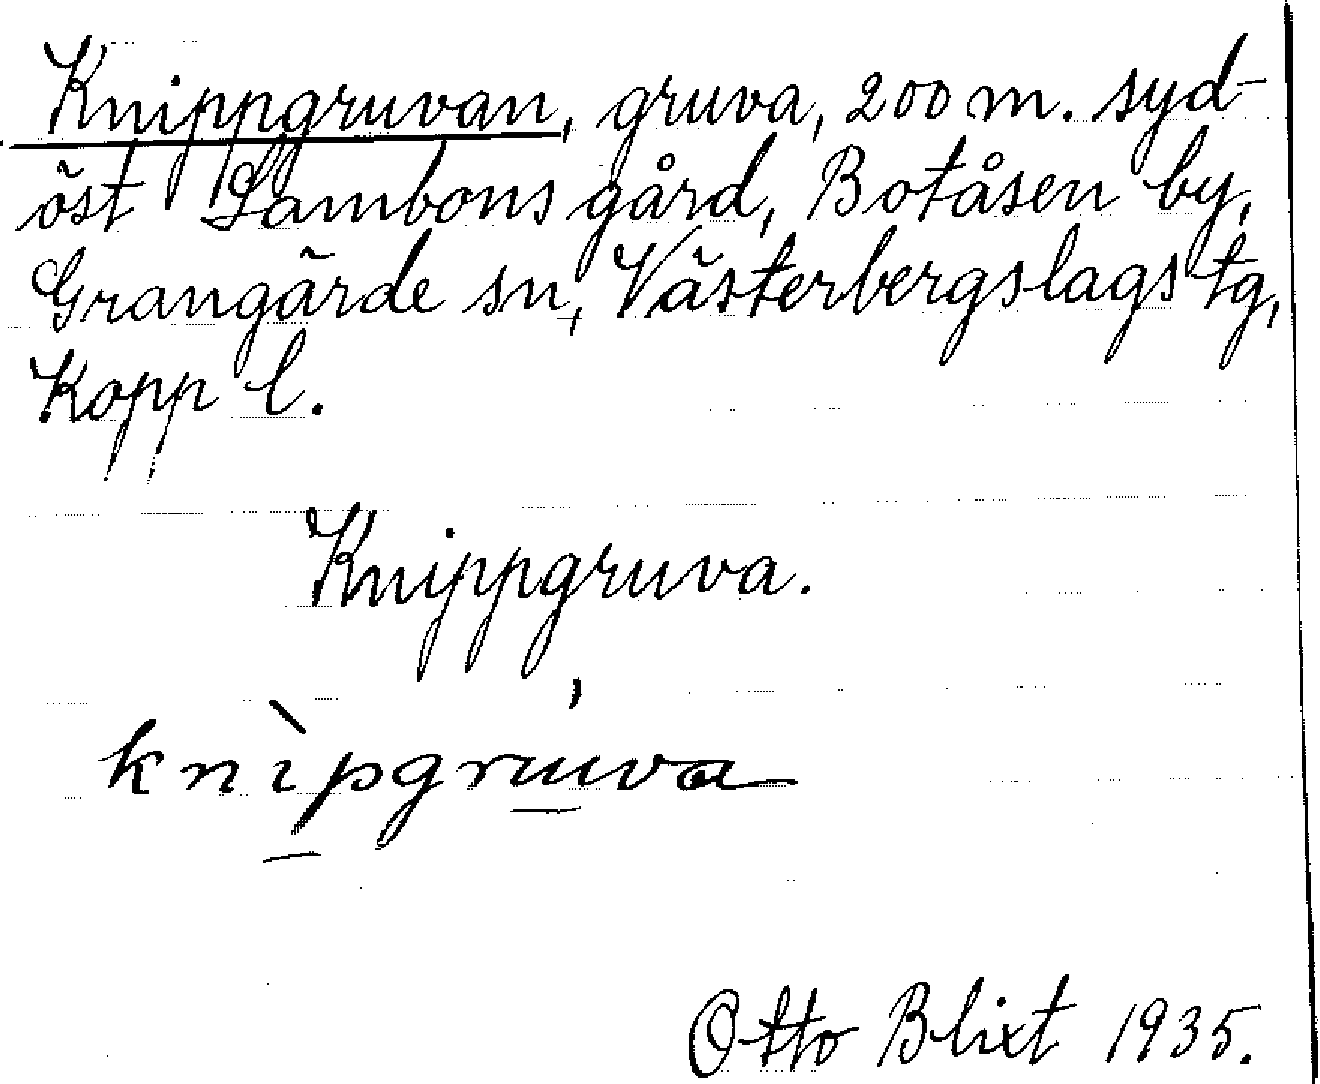 Knippgruvan, gruva, 200 m. syd-
öst Lambons gård, Botåsen by,
Grangärde sn, Västerbergslags tg,
Kopp l.
Knippgruva.
knìpgruva
Otto Blixt 1935.